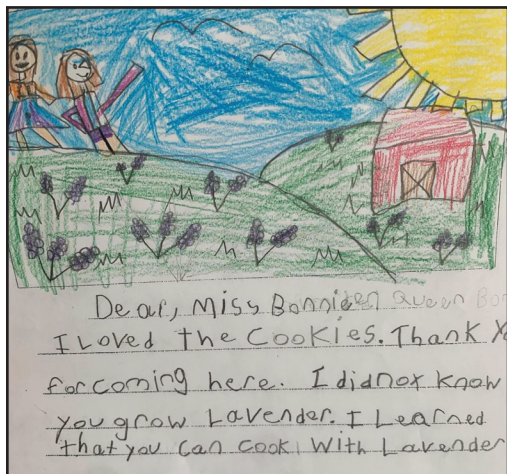 Dear, Miss Bonnie Queen Bo
I Loved the Cookies. Thank Yo
for coming here. I didnot know
you grow Lavender. I Learned
that you can cook With Lavender